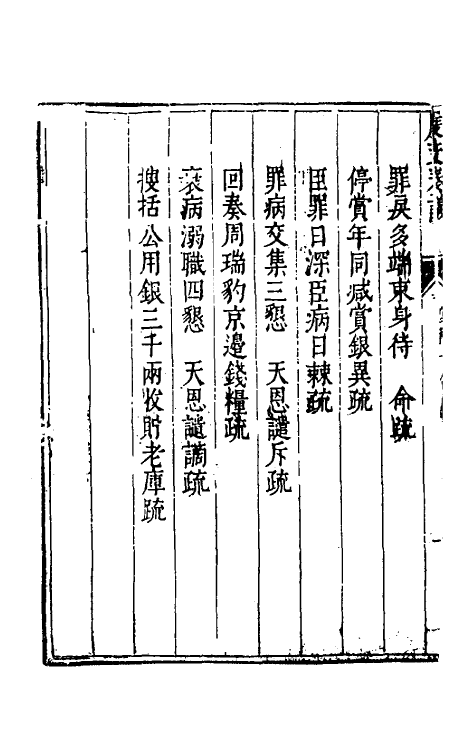 罪戾多端束身待　命疏
停賞年同减賞銀異疏
臣罪日深臣病日棘疏
罪病交集三懇　天恩譴斥疏
回奏周瑞豹京邉錢糧疏
衰病溺職四懇　天恩譴謫疏
搜括公用銀三千兩收貯老庫疏